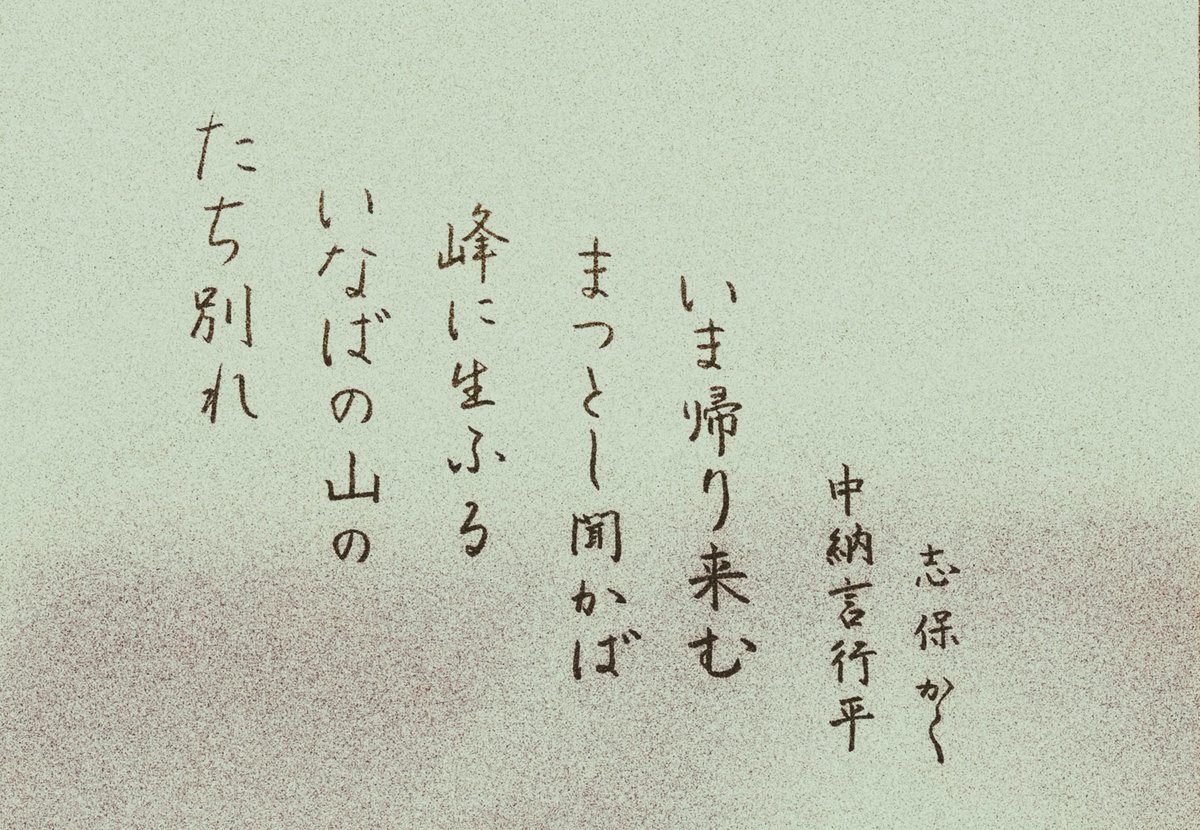 たち別れ
いなばの山の
峰に生ふる
まつとし聞かば
いま帰り来む
中納言行平
志保かく